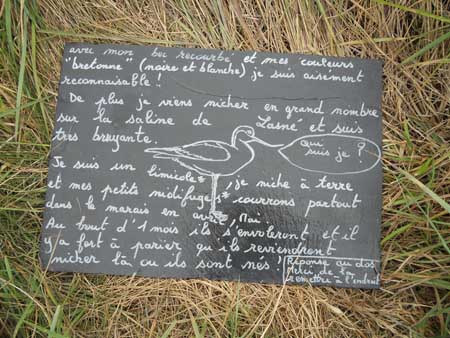 avec mon bec recourbé et mes couleurs
"bretonne" (noire et blanche) je suis aisement
reconnaisable !
De plus je viens nicher en grand nombre
sur la saline de Lasné et suis
tres bruyante.
Qui
suis je ?
Je suis un limicole*, je niche à terre
et mes petits nidifuges* courrons partout
dans le marais en avril, Mai
Au bout d'1 mois ils s'envoleront et il
y'a fort à parier qu'ils reviendront
nicher là ou ils sont nés !
Réponse au dos
Merci de la
remettre à l'endroit